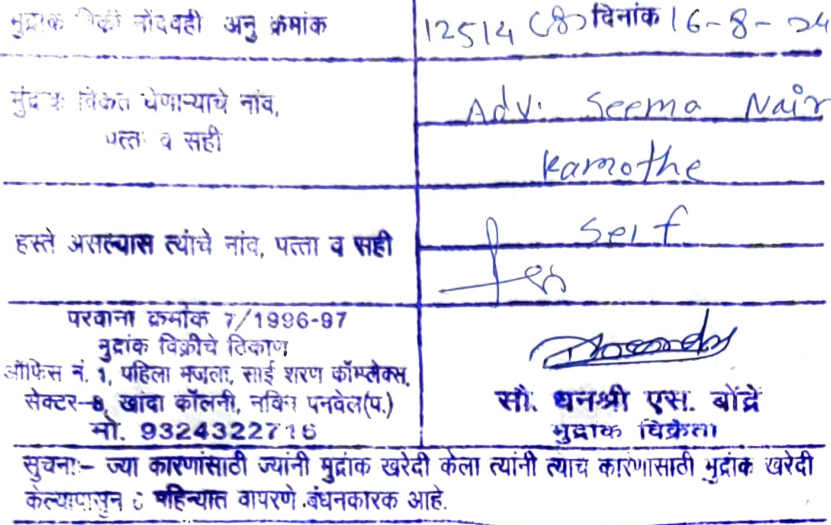 मुद्रांक विक्री नोंदवही अनु क्रमांक 12514 दिनांक 16-8-24
मुंद्रांक विकत घेणाऱ्याचे नांव, Adv. Seema Nair
पत्ता व सही Kamothe
हस्ते असल्यास त्यांचे नांव, पत्ता व सही Self
परवाना क्रमांक 7/1996-97
मुद्रांक विक्रीचे ठिकाण
ऑफिस नं. 1, पहिला मजला, साई शरण कॉम्प्लेक्स,
सेक्टर-8, खांदा कॉलनी, नविन पनवेल(प.) सौ. धनश्री एस. बोंद्रे
मो. 9324322716 मुद्रांक विक्रेता
सुचना:- ज्या कारणांसाठी ज्यांनी मुद्रांक खरेदी केला त्यांनी त्याच कारणासाठी मुद्रांक खरेदी
केल्यापासुन महिन्यात वापरणे बंधनकारक आहे.